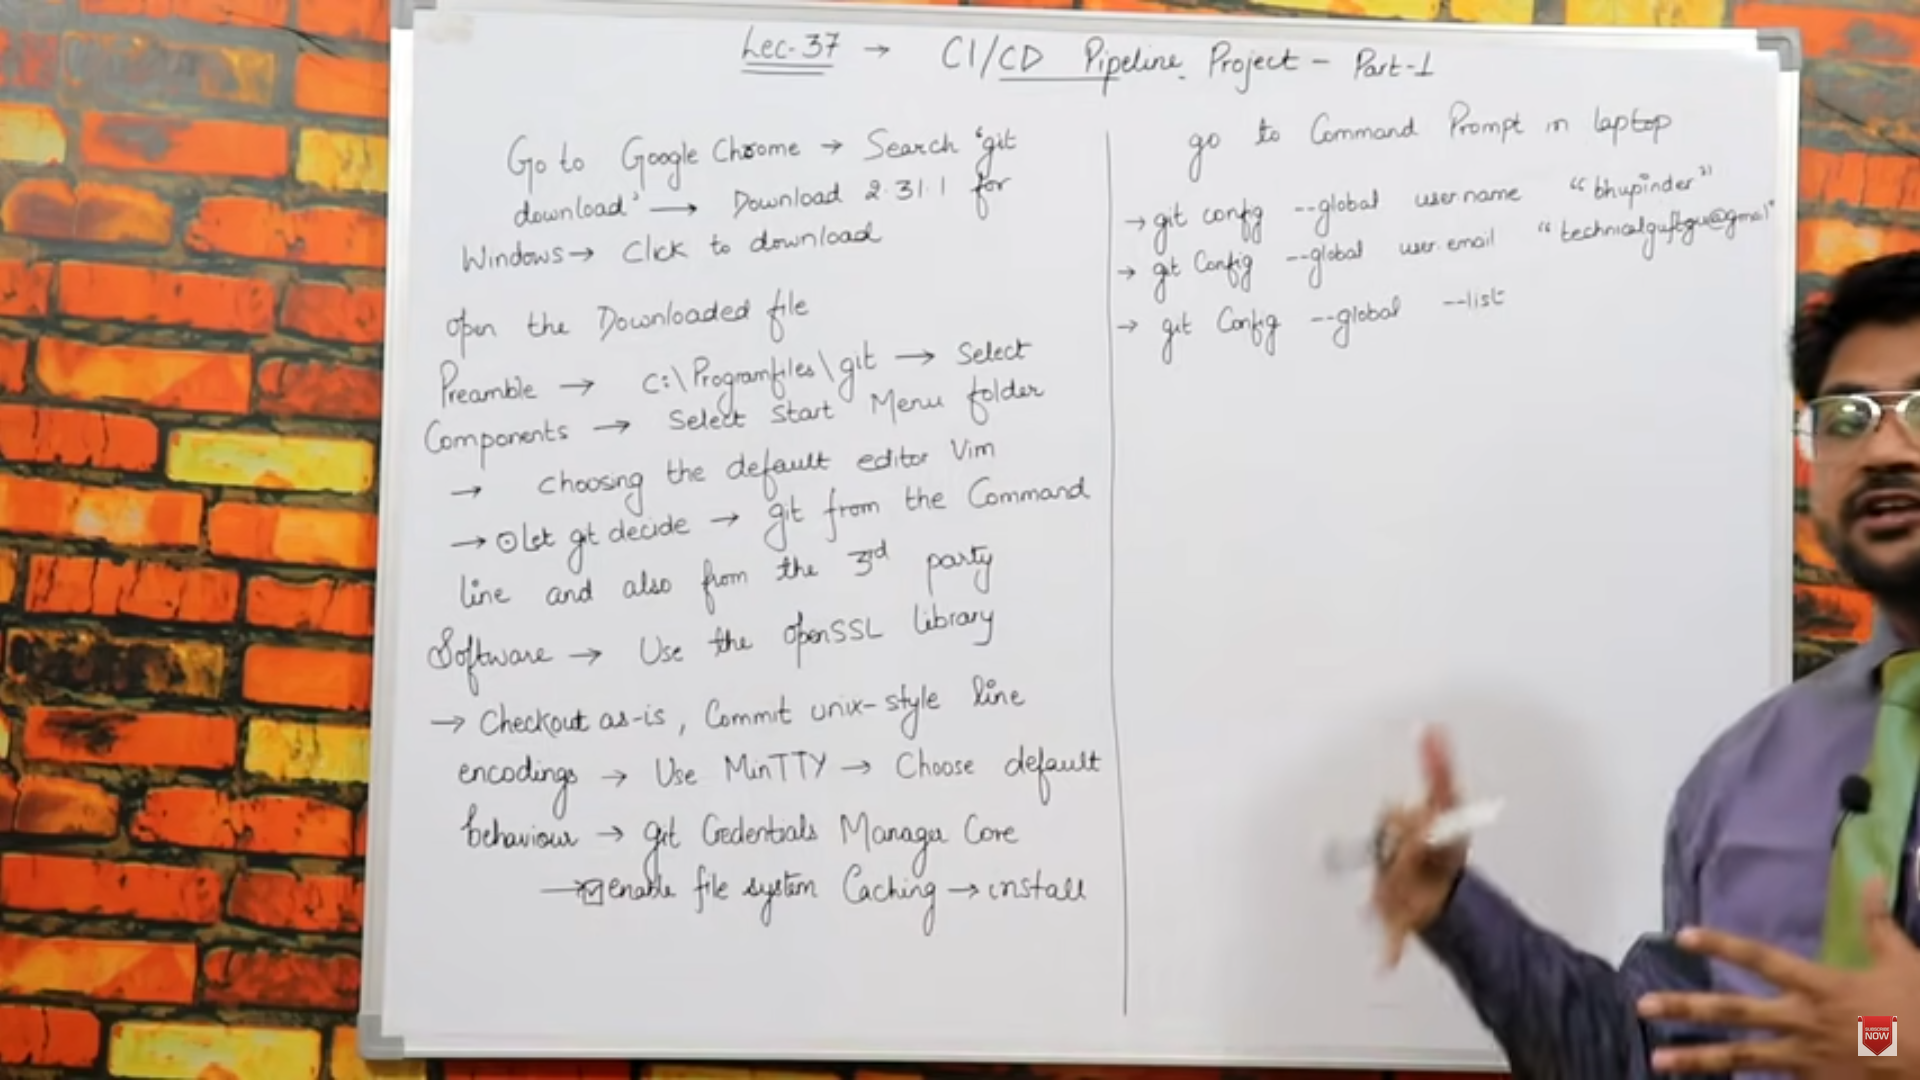 Lec-37 → CI/CD Pipeline Project - Part-1
Go to Google Chrome → Search 'git
download' → Download 2.31.1 for
Windows → Click to download
Open the Downloaded file
Preamble → C:\Programfiles\git → Select
Components → Select Start Menu folder
→ choosing the default editor Vim
→ ⊙ Let git decide → git from the Command
line and also from the 3rd party
Software → Use the OpenSSL library
→ Checkout as-is, Commit unix-style line
encodings → Use MinTTY → Choose default
behaviour → git Credentials Manager Core
→ ☑ enable file system Caching → install
go to Command Prompt in laptop
→ git config --global user.name "bhupinder"
→ git Config --global user.email "technicalguftgu@gmail"
→ git Config --global --list
SUBSCRIBE
NOW